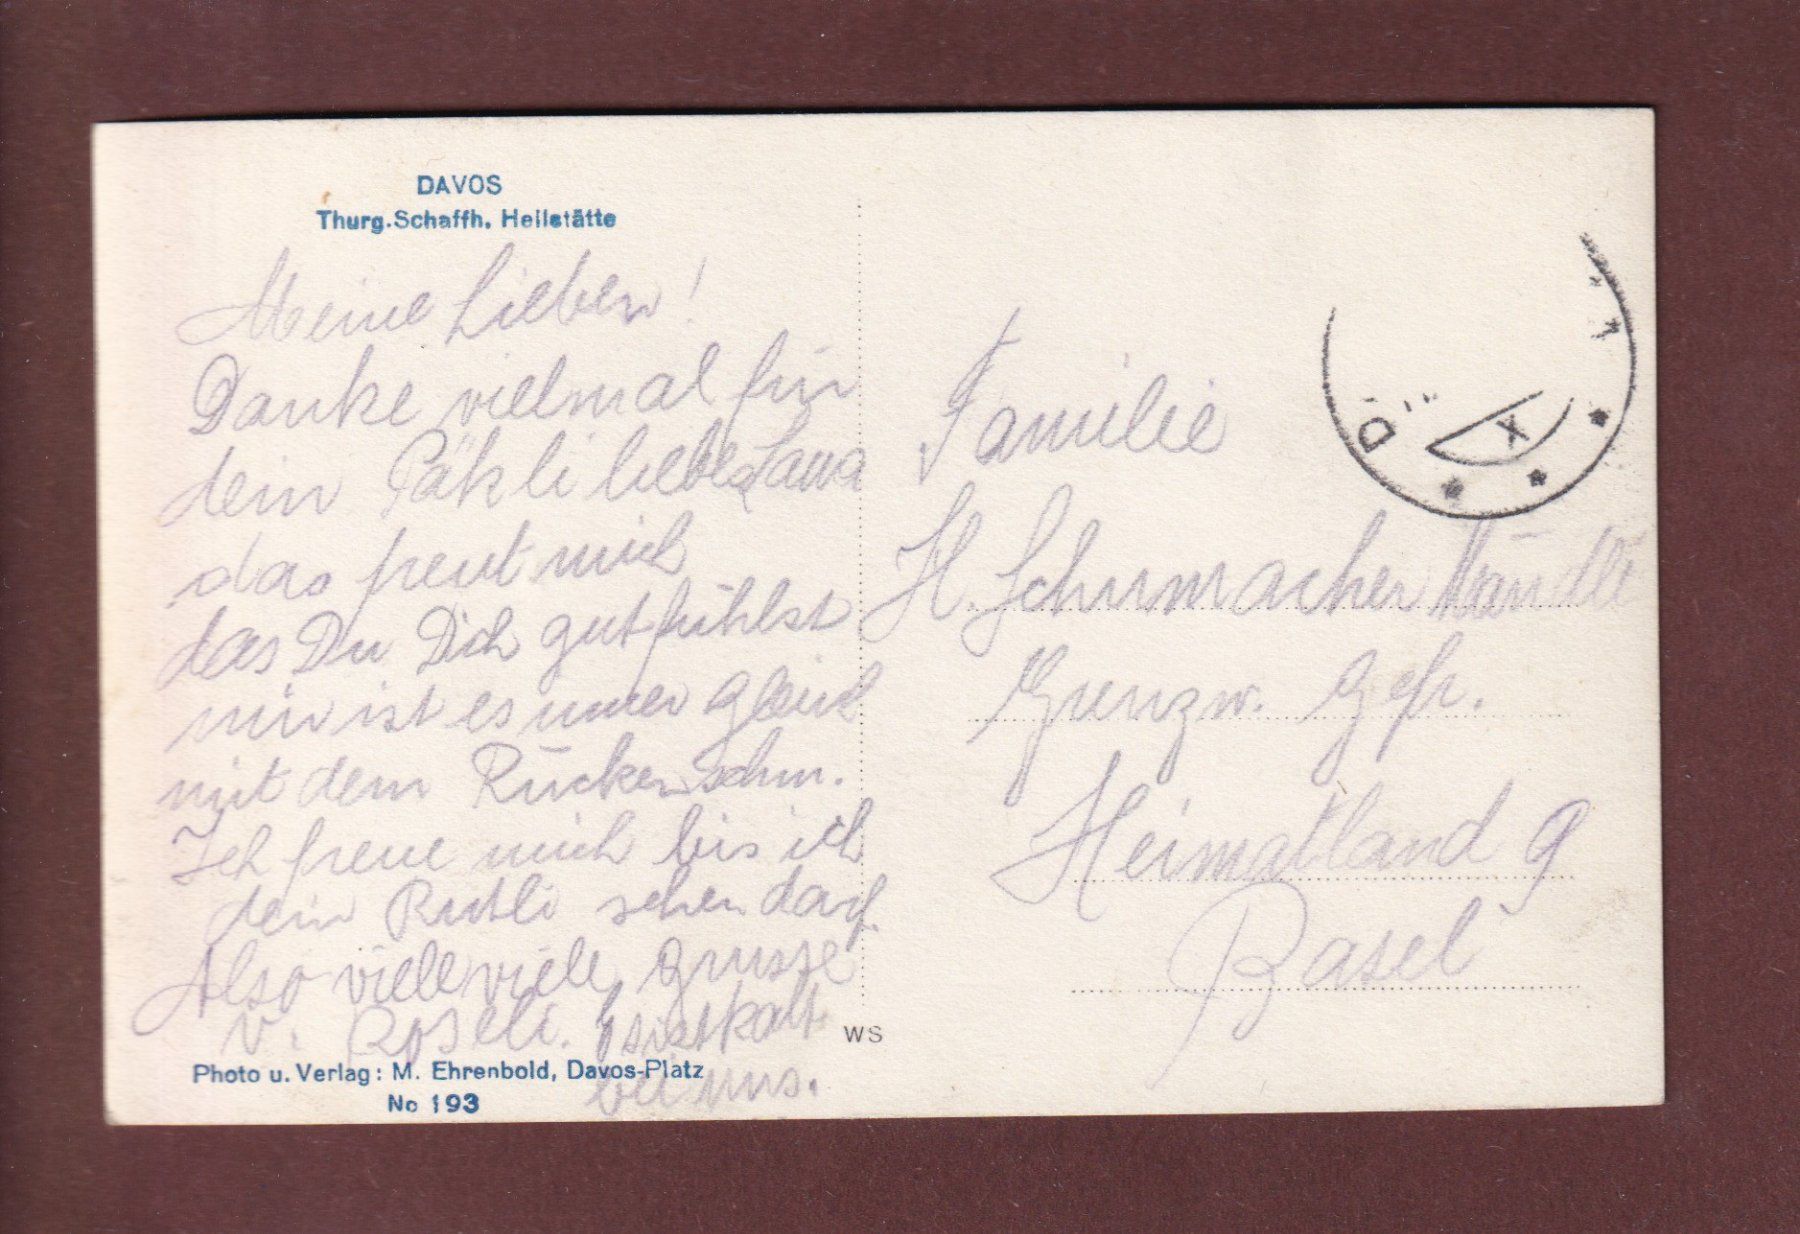 DAVOS
Thurg.Schaffh. Heilstätte
Meine Lieben!
Danke vielmal für
dein Päkli liebes
das freut mich
das Du Dich gut fühlst
mir ist es immer gleich
mit dem Rückenschm.
Ich freue mich bis ich
dein Rutli sehen darf.
Also viele viele grusse
v. Roseli. es ist kalt
bei uns.
Photo u. Verlag: M. Ehrenbold, Davos-Platz
No 193
WS
Familie
H. Schumacher
Grenzw. Gefr.
Heimatland 9
Basel
D
X